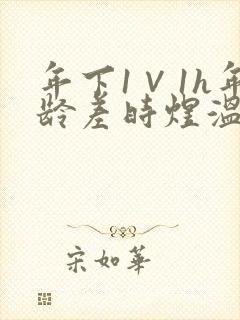 年下1V1h年
龄差时煜温
宋如華